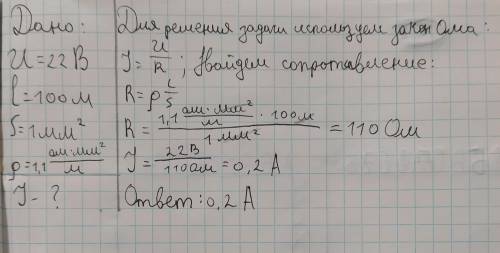 Дано:
U=22В
l=100м
S=1мм²
ρ=1,1 ом·мм²/м
J-?
Для решения задачи используем закон Ома:
J=U/R; Найдем сопротавление:
R=ρ l/S
R= (1,1 ом·мм²/м · 100м)/(1 мм²) =110 Ом
J= 22В/110ом =0,2 А
Ответ: 0,2 А